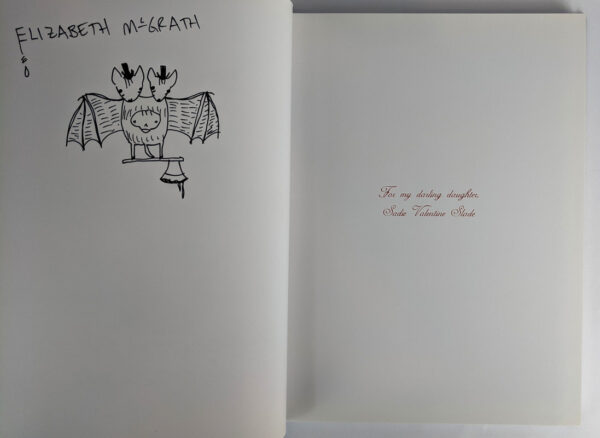 ELIZABETH McGRATH
For my darling daughter,
Sadie Valentine Slade